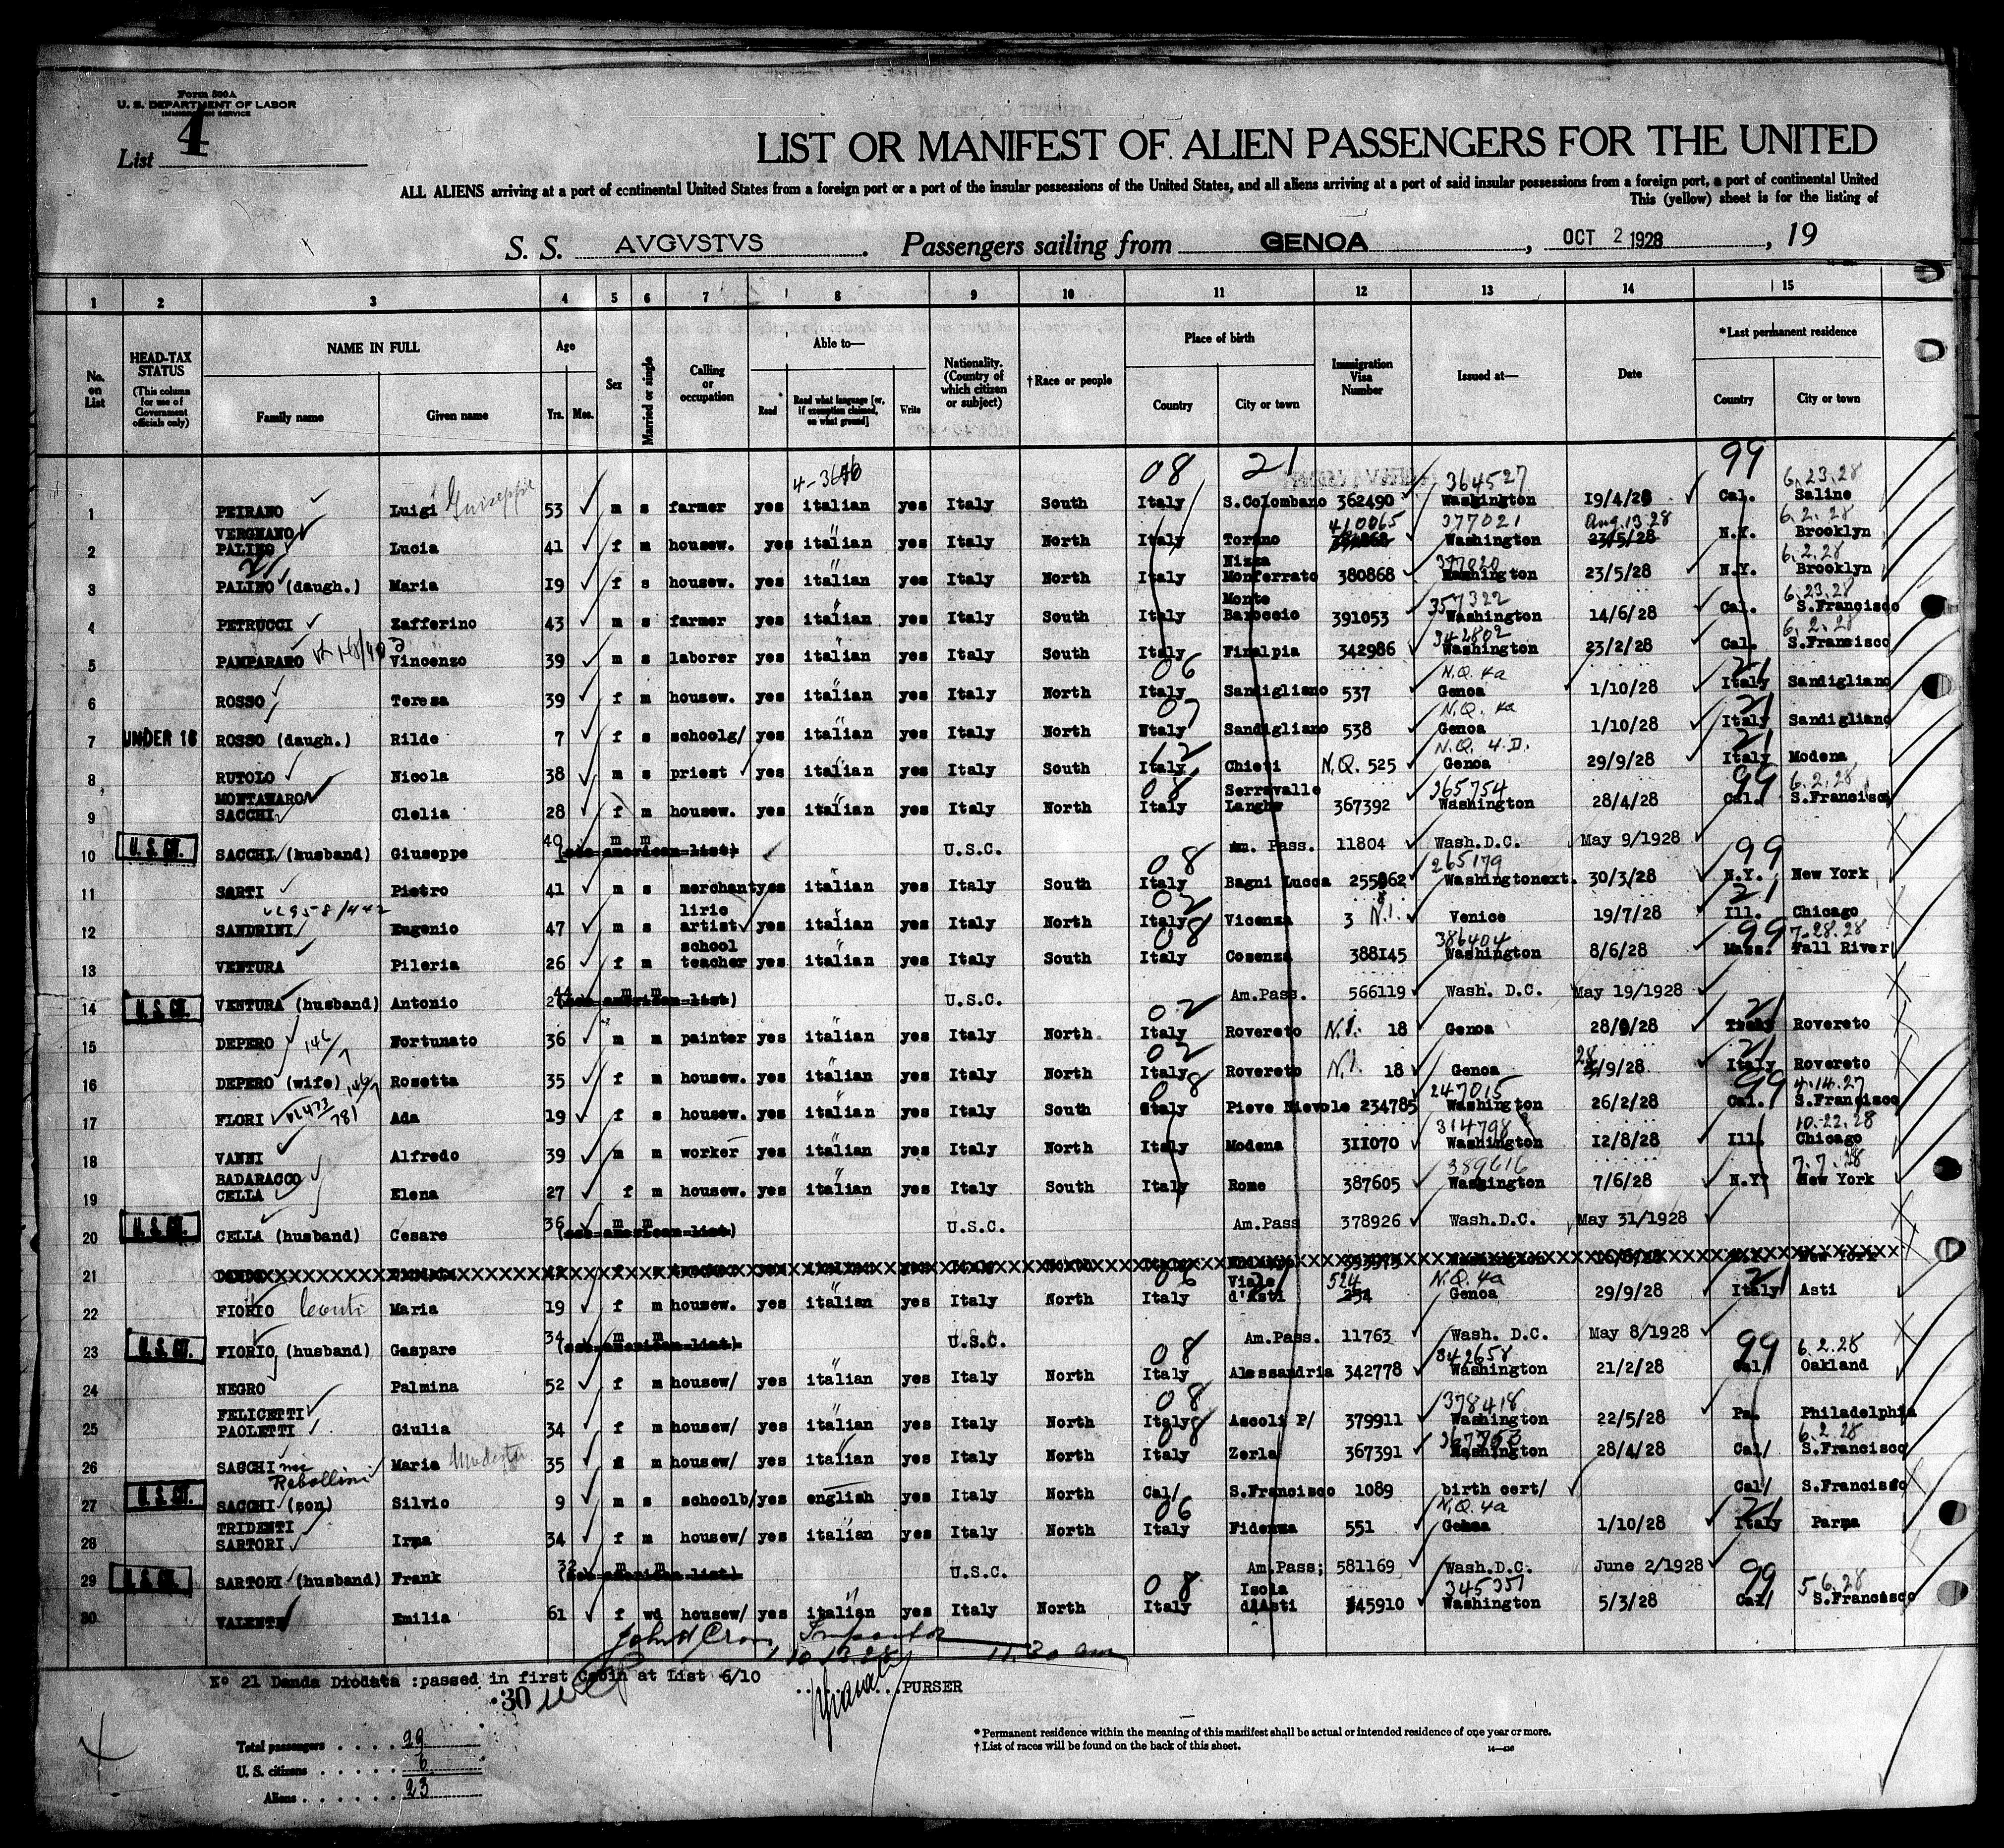 Form 500A
U. S. DEPARTMENT OF LABOR
IMMIGRATION SERVICE
List 4
LIST OR MANIFEST OF ALIEN PASSENGERS FOR THE UNITED
ALL ALIENS arriving at a port of continental United States from a foreign port or a port of the insular possessions of the United States, and all aliens arriving at a port of said insular possessions from a foreign port, a port of continental United
This (yellow) sheet is for the listing of
S. S. AVGVSTVS. Passengers sailing from GENOA, OCT 2 1928, 19
1 2 3 4 5 6 7 8 9 10 11 12 13 14 15
No. on List
HEAD-TAX STATUS
(This column for use of Government officials only)
NAME IN FULL
Family name Given name
Age
Yrs. Mos.
Sex
Married or single
Calling or occupation
Able to—
Read Read what language [or, if exemption claimed, on what ground] Write
Nationality. (Country of which citizen or subject)
†Race or people
Place of birth
Country City or town
Immigration Visa Number
Issued at—
Date
*Last permanent residence
Country City or town
08 21 364527 99 6.23.28
1 PEIRANO Luigi Guiseppie 53 m s farmer yes italian yes Italy South Italy S.Colombano 362490 Washington 19/4/28 Cal. Saline
VERGNANO 410065 377021 Aug.13.28 6.2.28
2 PALINO Lucia 41 f m housew. yes italian yes Italy North Italy Torino Washington 23/5/28 N.Y. Brooklyn
Nizza 377020 6.2.28
3 PALINO (daugh.) Maria 19 f s housew. yes italian yes Italy North Italy Monferrato 380868 Washington 23/5/28 N.Y. Brooklyn
Monte 357322 6.23.28
4 PETRUCCI Zafferino 43 m s farmer yes italian yes Italy South Italy Baroccio 391053 Washington 14/6/28 Cal. S.Francisco
342802 6.2.28
5 PAMPARARO Vincenzo 39 m s laborer yes italian yes Italy South Italy Finalpia 342986 Washington 23/2/28 Cal. S.Fransisco
06 N.Q. 4a 21
6 ROSSO Teresa 39 f m housew. yes italian yes Italy North Italy Sandigliano 537 Genoa 1/10/28 Italy Sandigliano
07 N.Q. 4a 21
7 UNDER 16 ROSSO (daugh.) Rilde 7 f s schoolg/ yes italian yes Italy North Italy Sandigliano 538 Genoa 1/10/28 Italy Sandigliano
12 N.Q. 4.D. 21
8 RUTOLO Nicola 38 m s priest yes italian yes Italy South Italy Chieti N.Q. 525 Genoa 29/9/28 Italy Modena
MONTANARO 08 Serravalle 365754 99 6.2.28
9 SACCHI Clelia 28 f m housew. yes italian yes Italy North Italy Langhe 367392 Washington 28/4/28 Cal. S.Francisco
10 U.S. CIT. SACCHI (husband) Giuseppe 40 m m (see american list) U.S.C. Am. Pass. 11804 Wash.D.C. May 9/1928
08 265179 99
11 SARTI Pietro 41 m s merchant yes italian yes Italy South Italy Bagni Lucca 255862 Washington ext. 30/3/28 N.Y. New York
liric 02 21
12 SANDRINI Eugenio 47 m s artist yes italian yes Italy North Italy Vicenza 3 N.I. Venice 19/7/28 Ill. Chicago
school 08 386404 99 7-28.28
13 VENTURA Pileria 26 f m teacher yes italian yes Italy South Italy Cosenza 388145 Washington 8/6/28 Mass. Fall River
14 U.S. CIT. VENTURA (husband) Antonio 44 m m (see american list) U.S.C. Am.Pass. 566119 Wash. D.C. May 19/1928
02 21
15 DEPERO 146/7 Fortunato 36 m m painter yes italian yes Italy North Italy Rovereto N.I. 18 Genoa 28/9/28 Italy Rovereto
02 21
16 DEPERO (wife) 146/7 Rosetta 35 f m housew. yes italian yes Italy North Italy Rovereto N.I. 18 Genoa 28/9/28 Italy Rovereto
08 247015 99 4.14.27
17 FLORI Ada 19 f s housew. yes italian yes Italy South Italy Pieve Nievole 234785 Washington 26/2/28 Cal. S.Francisco
314798 10-22.28
18 VANNI Alfredo 39 m m worker yes italian yes Italy North Italy Modena 311070 Washington 12/8/28 Ill. Chicago
BADARACCO 389616 7.7.28
19 CELLA Elena 27 f m housew. yes italian yes Italy South Italy Rome 387605 Washington 7/6/28 N.Y. New York
20 U.S. CIT. CELLA (husband) Cesare 36 m m (see american list) U.S.C. Am.Pass 378926 Wash.D.C. May 31/1928
21 New York
06 Viale 524 N.Q. 4a 21
22 FIORIO Conti Maria 19 f m housew. yes italian yes Italy North Italy d'Asti Genoa 29/9/28 Italy Asti
23 U.S. CIT. FIORIO (husband) Gaspare 34 m m (see american list) U.S.C. Am.Pass. 11763 Wash. D.C. May 8/1928
08 342658 99 6.2.28
24 NEGRO Palmina 52 f m housew/ yes italian yes Italy North Italy Alessandria 342778 Washington 21/2/28 Cal/ Oakland
FELICETTI 08 378418
25 PAOLETTI Giulia 34 f m housew/ yes italian yes Italy North Italy Ascoli P/ 379911 Washington 22/5/28 Pa. Philadelphia
08 6.2.28
26 SACCHI nee Rebollini Maria Modesta 35 m housew/ yes italian yes Italy North Italy Zerla 367391 Washington 28/4/28 Cal/ S.Francisco
27 U.S. CIT. SACCHI (son) Silvio 9 m s schoolb/ yes english yes Italy North Cal/ S.Francisco 1089 birth cert/ Cal/ S.Francisco
TRIDENTI 06 N.Q. 4a 21
28 SARTORI Irma 34 f m housew/ yes italian yes Italy North Italy Fidenza 551 Genoa 1/10/28 Italy Parma
29 U.S. CIT. SARTORI (husband) Frank 32 m m (see american list) U.S.C. Am.Pass; 581169 Wash.D.C. June 2/1928
08 Isola 345351 99 5.6.28
30 VALENTE Emilia 61 f wd housew/ yes italian yes Italy North Italy d'Asti 345910 Washington 5/3/28 Cal/ S.Francisco
11.30 am
No 21 Danda Diodata :passed in first Cabin at List 6/10
30
PURSER
Total passengers 29
U. S. citizens 6
Aliens 23
* Permanent residence within the meaning of this manifest shall be actual or intended residence of one year or more.
† List of races will be found on the back of this sheet.